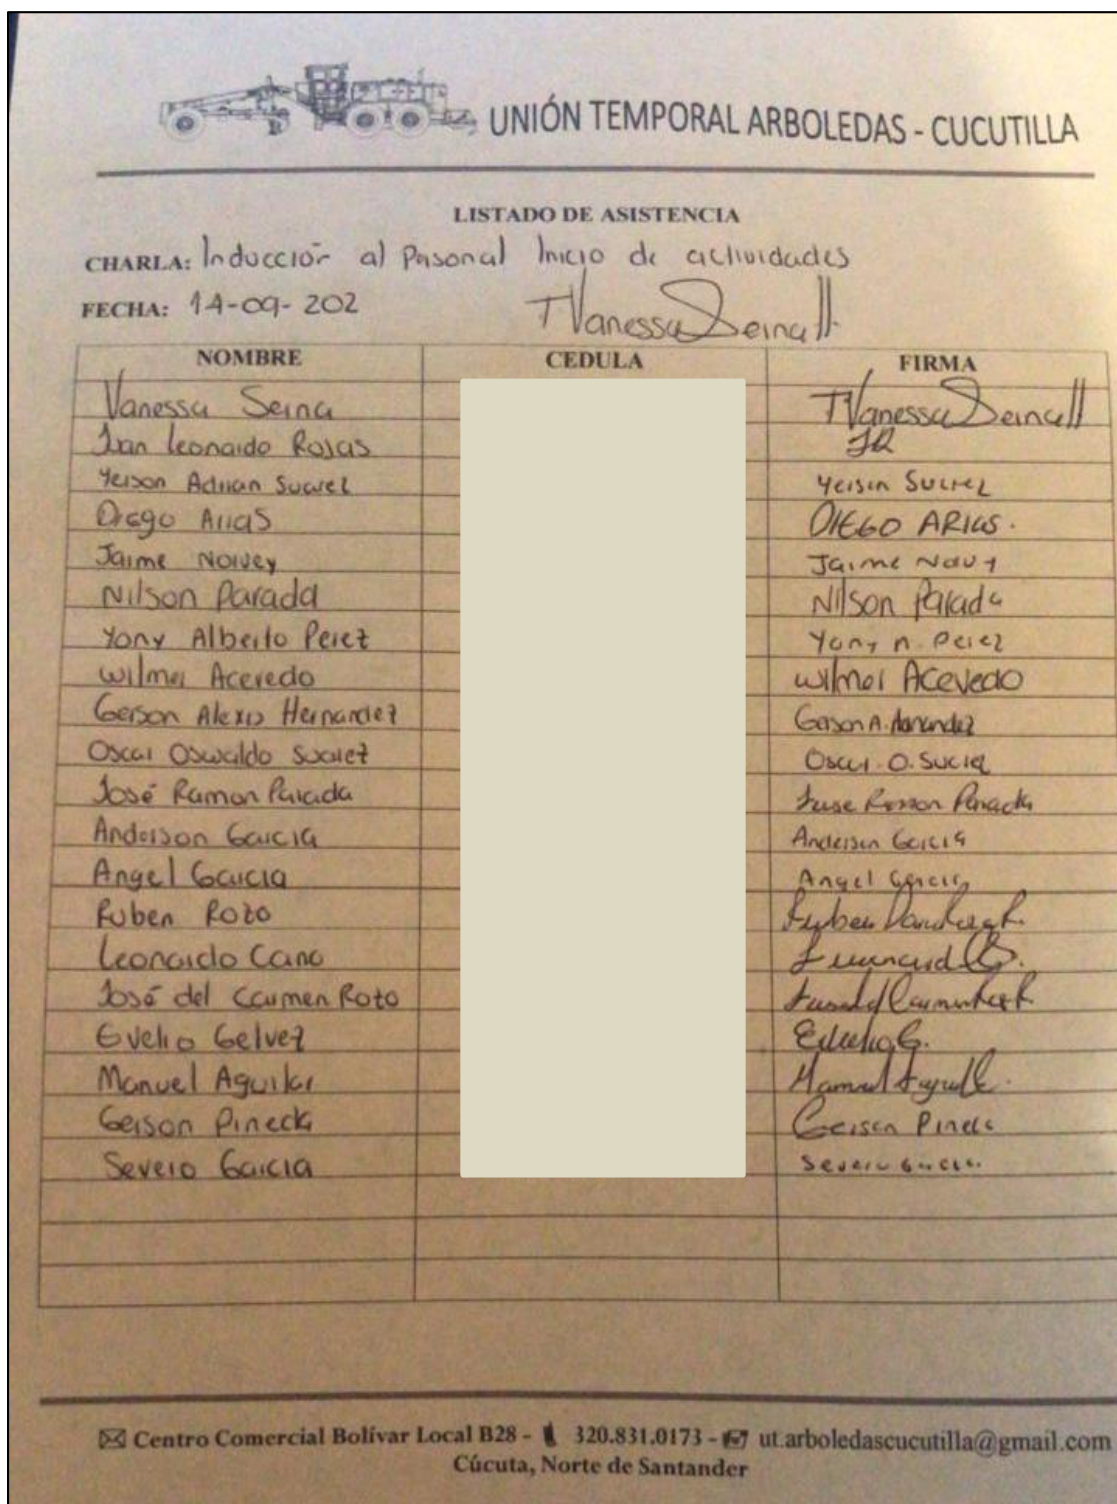 UNIÓN TEMPORAL ARBOLEDAS - CUCUTILLA
LISTADO DE ASISTENCIA
CHARLA: Inducción al Pasonal Inicio de actividades
FECHA: 14-09-202
TVanessa
NOMBRE CEDULA FIRMA
Vanessa Serna TVanessa
Ivan Leonardo Rojas JR
Yeison Adrian Suarez Yeison Suarez
Diego Arias DIEGO ARIAS.
Jaime Norvey Jaime
Nilson Parada Nilson Parada
Yony Alberto Perez Yony A. Perez
Wilmer Acevedo Wilmer Acevedo
Gerson Alexis Hernandez Gerson A. Hernandez
Oscar Oswaldo Suarez Oscar O.
José Ramon Parada Jose Ramon Parada
Anderson Garcia Anderson Garcia
Angel Garcia Angel Garcia
Ruben Rozo Ruben
Leonardo Cano
José del Carmen Rozo
Evelio Gelvez Evelio G.
Manuel Aguilar Manuel
Gerson Pineda Gerson Pineda
Severo Garcia Severo Garcia
Centro Comercial Bolívar Local B28 - 320.831.0173 - ut.arboledascucutilla@gmail.com
Cúcuta, Norte de Santander